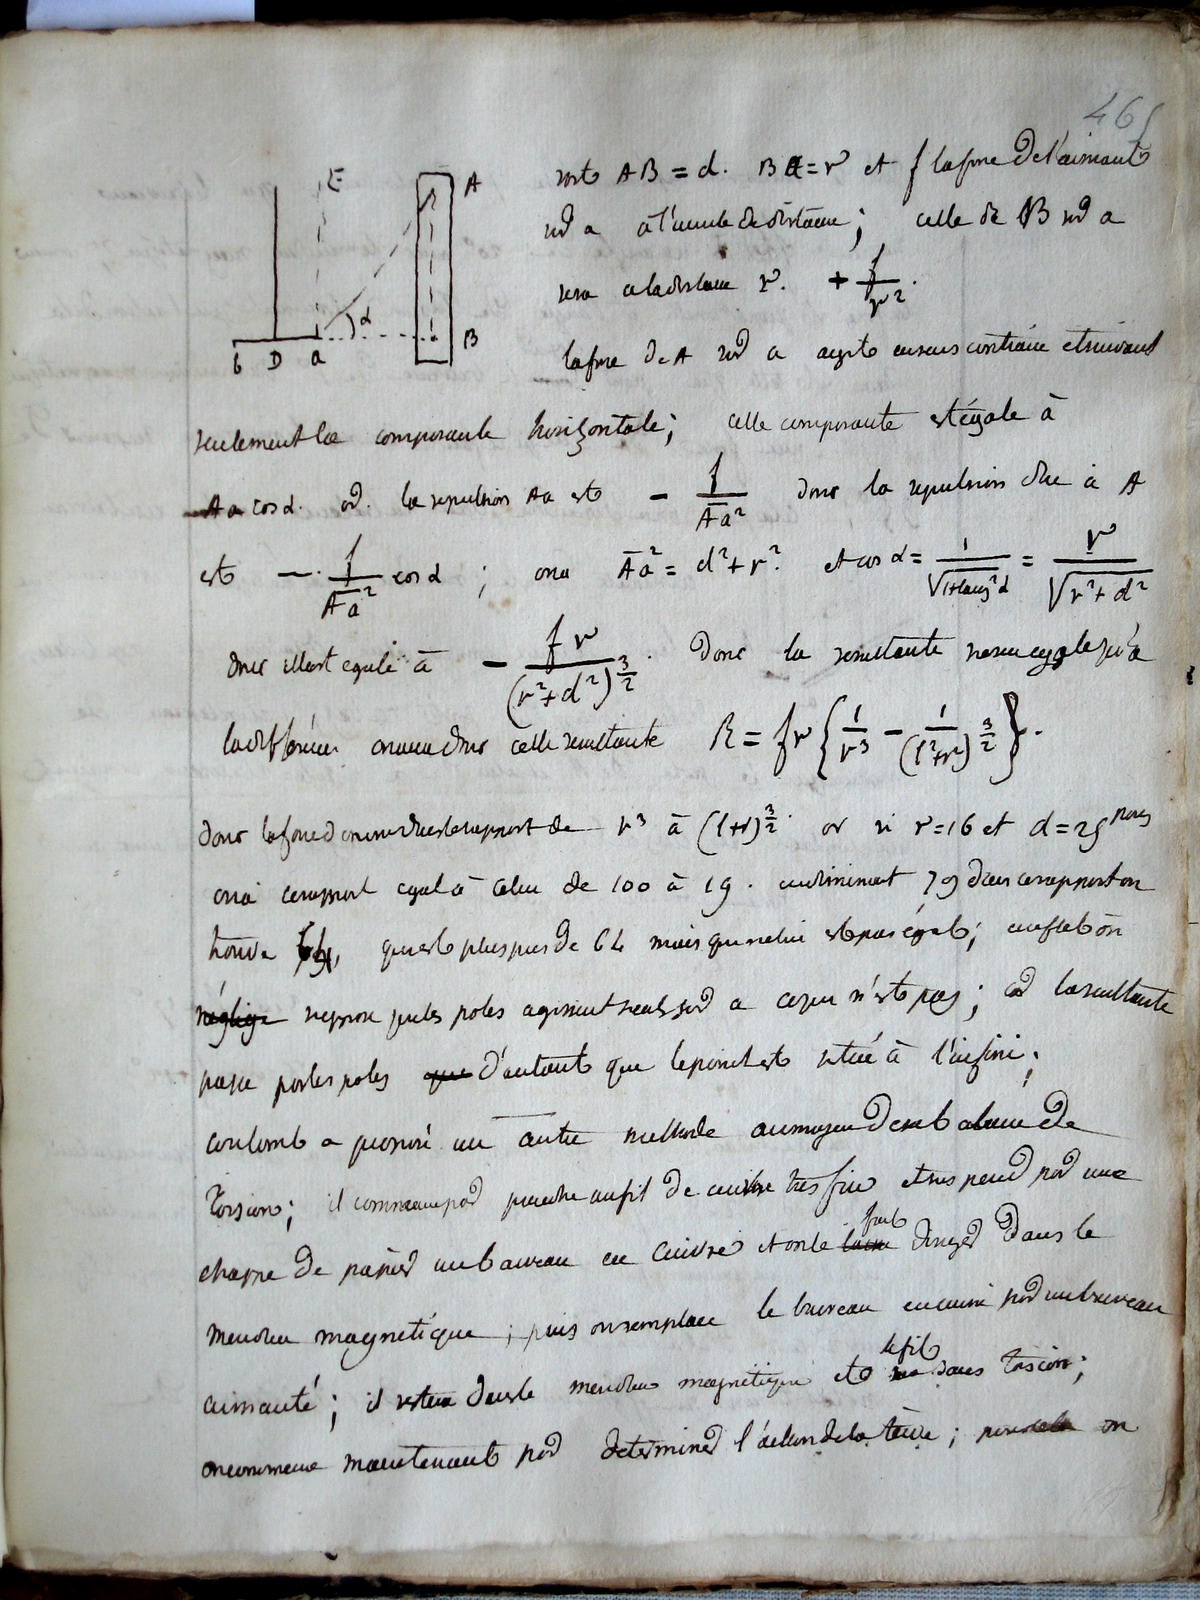 465
E A
α
b D a B
soit AB = d. Ba = r et f la force de l'aimant
sur a à l'unité de distance ; celle de B sur a
sera à la distance r. + f/r².
la force de A sur a agit en sens contraire et suivant
seulement la composante horizontale ; cette composante est égale à
Aa cos α. or. la repulsion Aa est − f/Aa² donc la repulsion due à A
est − f/Aa² cos α ; on a Aa² = d² + r². et cos α = 1/√(1+tang²α) = r/√(r²+d²)
donc il est egale à − fr/(r²+d²)^3/2. Donc la resultante sera egale à
la difference on aura donc cette resultante R = fr {1/r³ − 1/(l²+r²)^3/2}.
donc la force diminue dans le rapport de r³ à (l+r)^3/2. or si r=16 et d=25 pouces
on a ce rapport egal à celui de 100 à 19. en diminuant 79 dans ce rapport on
trouve 64, qui est plus près de 64 mais qui ne lui est pas égal ; en effet on
néglige suppose que les poles agissent seuls sur a ce qui n'est pas ; car la resultante
passe par les poles que d'autant que le point est situé à l'infini ;
coulomb a proposé une autre methode au moyen de sa balance de
torsion ; il commence par prendre un fil de cuivre très fin et suspend par une
chappe de papier un barreau en cuivre et on le fait diriger dans le
meridien magnétique ; puis on remplace le barreau en cuivre par un barreau
aimanté ; il reste dans le meridien magnétique et le fil sans torsion ;
on commence maintenant par determiner l'action de la terre ; pour cela on